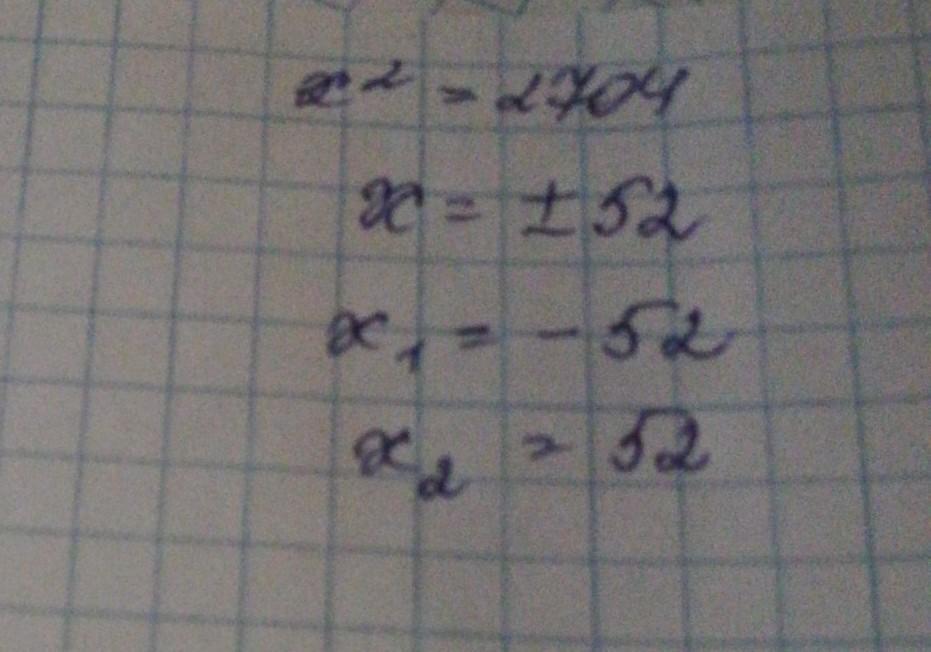 x² = 2704
x = ±52
x₁ = -52
x₂ = 52